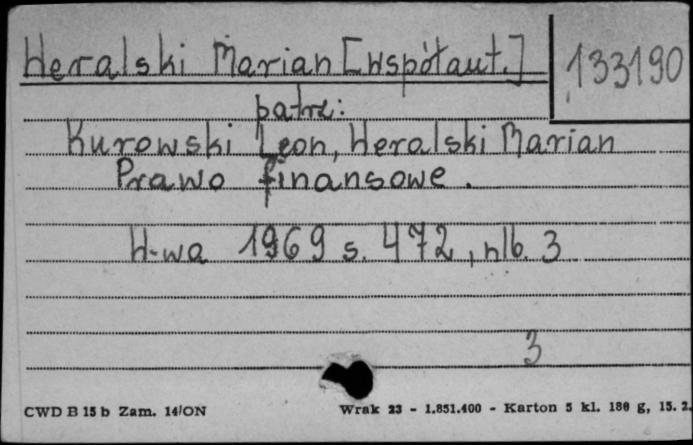 Weralski Marian [Współaut.]
133190
patrz:
Kurowski Leon, Weralski Marian
Prawo finansowe.
W-wa 1969 s. 472, nlb. 3
3
CWD B 15 b Zam. 14/ON
Wrak 23 - 1.851.400 - Karton 5 kl. 180 g, 15. 2.